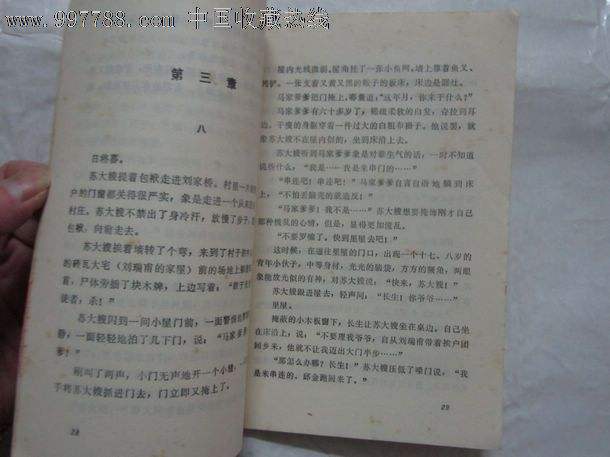 www.997788.com 中国收藏热线
第三章
八
日将暮。
苏大嫂挎着包袱走进刘家桥。村里一
户的门窗都关得很严实，象是走进一个
村庄。苏大嫂不禁出了身冷汗，放慢了步子，
包袱，向前走去。
苏大嫂挨着墙转了个弯，来到了村子
的砖瓦大宅（刘瑞甫的家屋）前的场地上
首，尸体旁插了块木牌，上边写着：“
徒者，杀！”
苏大嫂闪到一间小屋门前，一面警惕
，一面轻轻地拍了几下门，说：“马家爹爹！
爹！”
刚叫了两声，小门无声地开一个小缝，
手将苏大嫂抓进门去，门立即又掩上了。
28
屋内光线微弱。屋角挂了一张小鱼网，墙上靠着鱼叉、
，一张支着又黄又黑的帐子的板床，床边是锅灶。
马家爹爹把门掩上，嘟囔道：“这年月，你来干什么？”
马家爹爹有六十多岁了，稀疏柔软的白发，奋拉到耳
边。干瘦的身躯穿着一件过大的白粗布褂子。他说罢，就
苏大嫂不在屋内似的，坐到床沿上去。
苏大嫂听到马家爹爹象是对谁生气的话，一时不知道
说些什么，“我是……我是米串门的……”
“串连吧！串连吧！”马家爹爹自言自语地躺到床
上，“不怕丢脑壳的就造反！”
“马家爹爹！我不是……”苏大嫂想要掩饰刚才自己
那种慌乱的心情，但是，显得更加慌乱。
“不要罗嗦了。快到里屋去吧！”
这时候，在通往里屋的门口，出现一个十七、八岁的
青年小伙子，中等身材，光光的脑袋，方方的颚角，两眼
象能放光似的有神，对苏大嫂说：“快来，苏大嫂！”
苏大嫂跟进屋去，轻声问：“长生！你爷爷……”
里屋。
掩蔽的小木板窗下，长生让苏大嫂坐在桌边，自己坐
在床沿上，说：“不要理我爷爷，自从刘瑞甫带着挨户团
回乡来，他就不让我迈出大门半步……”
“那怎么办哪？长生！”苏大嫂压低了嗓门说，“我
是来串连的，邱金跑回来了。”
29